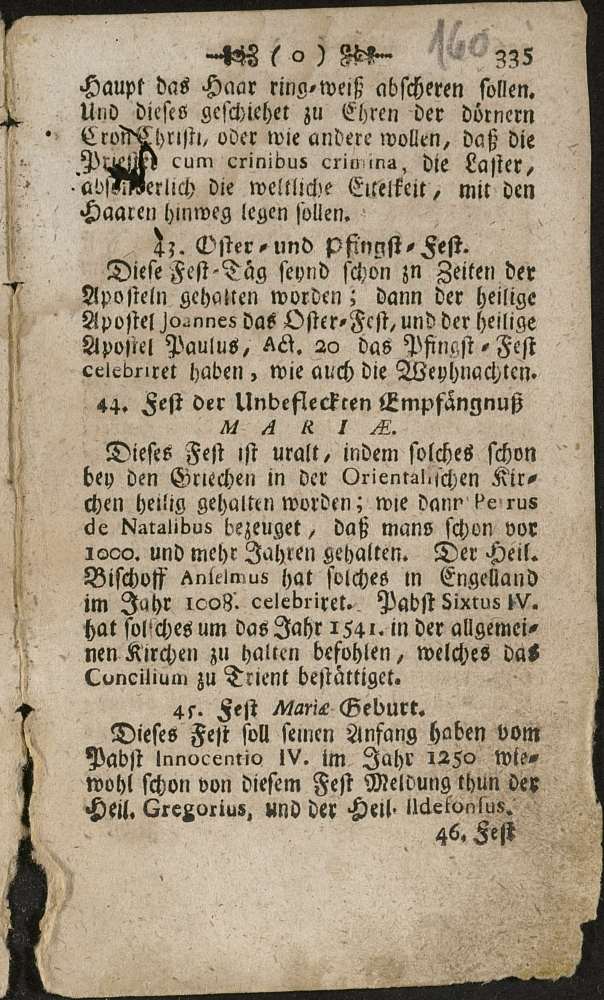 ( o ) 160 335
Haupt das Haar ring-weiß abscheren sollen.
Und dieses geschiehet zu Ehren der dörnern
Cron Christi, oder wie andere wollen, daß die
Priester cum crinibus crimina, die Laster,
absonderlich die weltliche Eitelkeit, mit den
Haaren hinweg legen sollen.
43. Oster- und Pfingst-Fest.
Diese Fest-Täg seynd schon zn Zeiten der
Aposteln gehalten worden; dann der heilige
Apostel Joannes das Oster-Fest, und der heilige
Apostel Paulus, Act. 20 das Pfingst-Fest
celebriret haben, wie auch die Weyhnachten.
44. Fest der Unbefleckten Empfängnuß
M A R I Æ.
Dieses Fest ist uralt, indem solches schon
bey den Griechen in der Orientalischen Kir-
chen heilig gehalten worden; wie dann Petrus
de Natalibus bezeuget, daß mans schon vor
1000. und mehr Jahren gehalten. Der Heil.
Bischoff Anselmus hat solches in Engelland
im Jahr 1008. celebriret. Pabst Sixtus IV.
hat solches um das Jahr 1541. in der allgemei-
nen Kirchen zu halten befohlen, welches das
Concilium zu Trient bestättiget.
45. Fest Mariæ Geburt.
Dieses Fest soll seinen Anfang haben vom
Pabst Innocentio IV. im Jahr 1250 wie-
wohl schon von diesem Fest Meldung thun der
Heil. Gregorius, und der Heil. Ildefonsus.
46. Fest